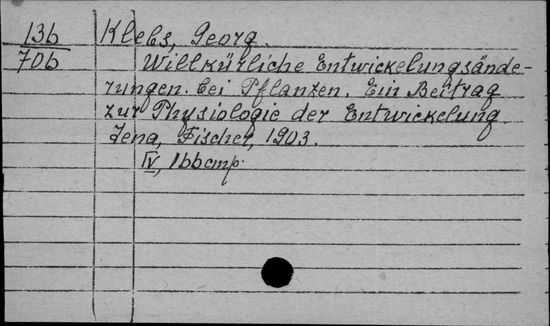 13b Klebs, Georg.
70b Willkürliche Entwickelungsände-
rungen bei Pflanzen. Ein Beitrag
zur Physiologie der Entwickelung.
Jena, Fischer, 1903.
IV, 166 cmp.